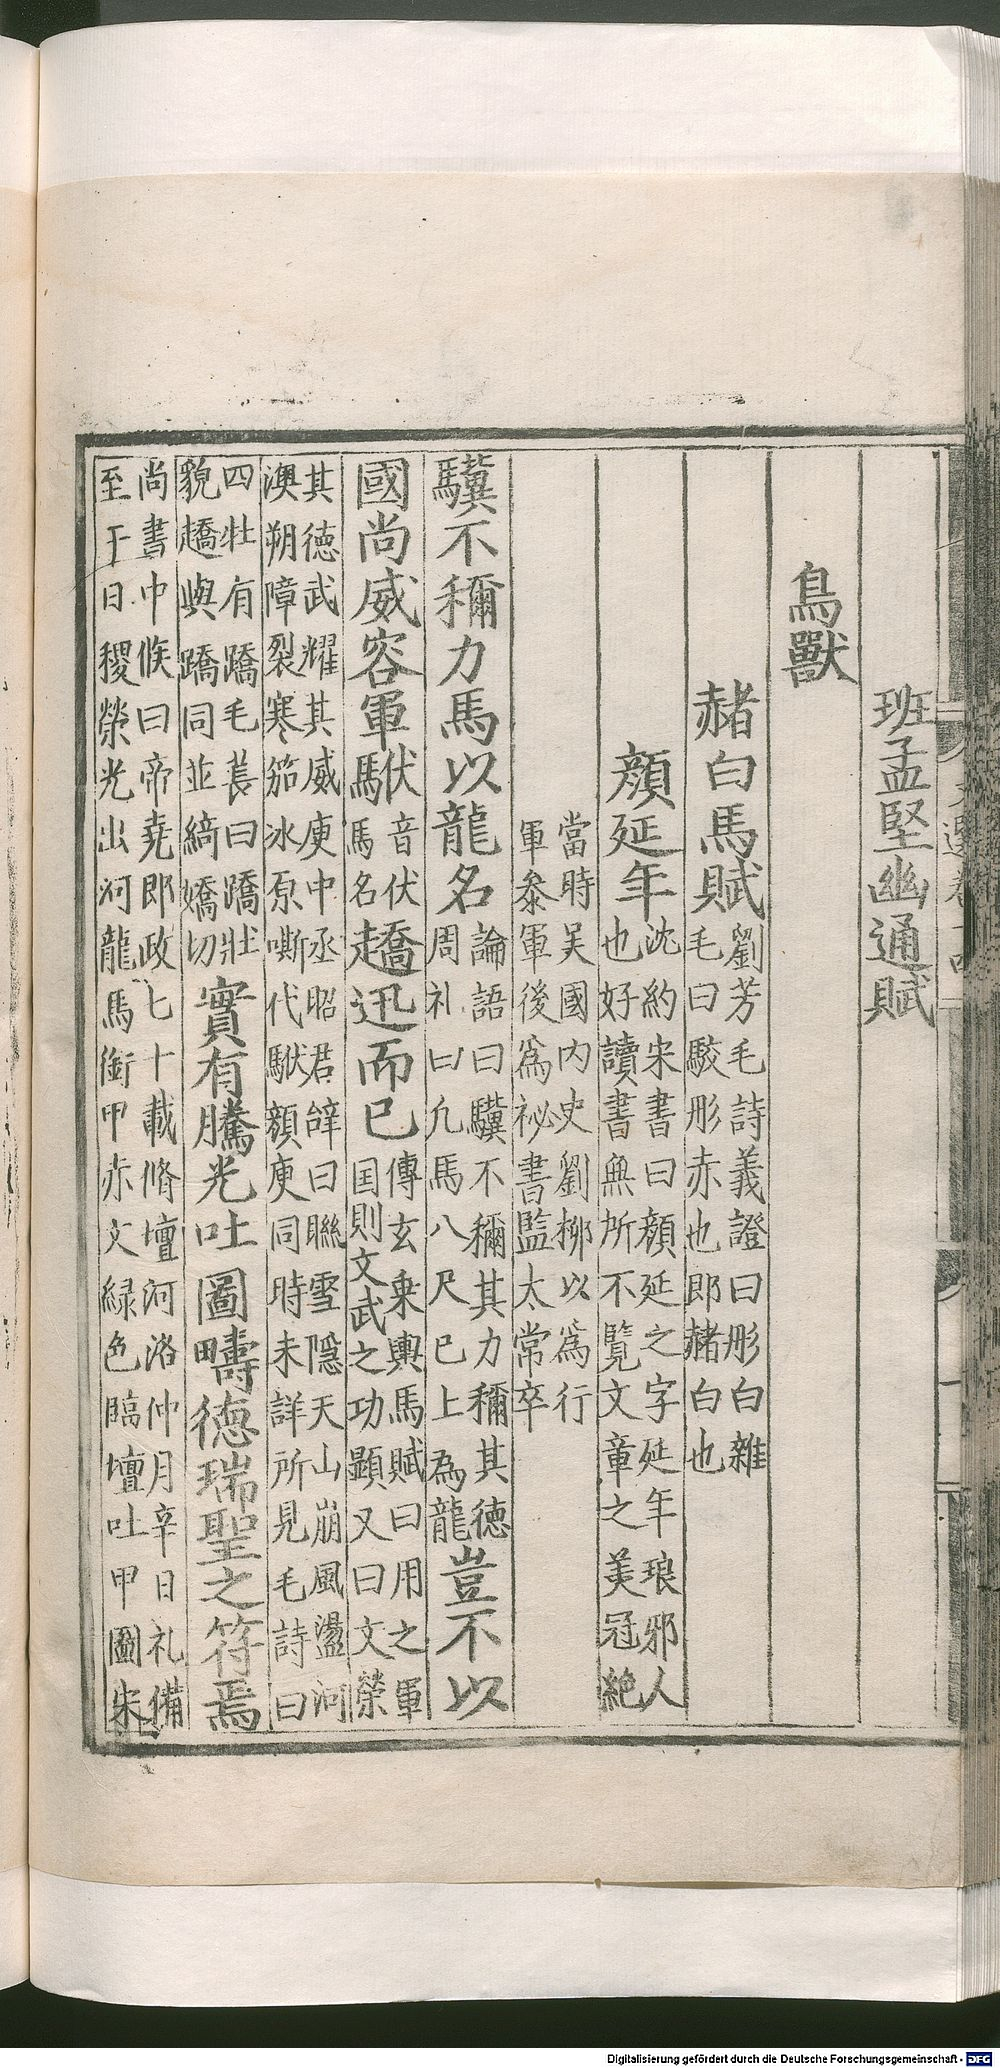 班孟堅幽通賦
鳥獸
赭白馬賦劉芳毛詩義證曰彤白雜
毛曰駮彤赤也即赭白也
顏延年沈約宋書曰顏延之字延年琅邪人
也好讀書無所不覽文章之美冠絶
當時吴國内史劉栁以為行
軍叅軍後為祕書監太常卒
驥不稱力馬以龍名論語曰驥不稱其力稱其德
周礼曰凢馬八尺已上為龍豈不以
國尚威容軍音伏
馬名趫迅而已傅玄乗輿馬賦曰用之軍
国則文武之功顯又曰文榮
其德武耀其威庾中丞昭君辝曰聯雪隠天山崩風盪河
澳朔障裂寒笳冰原嘶代顏庾同時未詳所見毛詩曰
四牡有蹻毛萇曰蹻壮
貌趫與蹻同並綺嬌切實有騰光吐圖疇德瑞聖之符焉
尚書中候曰帝堯即政七十載脩壇河洛仲月辛日礼備
至于日稷榮光出河龍馬銜甲赤文緑色臨壇吐甲圖朱
Digitalisierung gefördert durch die Deutsche Forschungsgemeinschaft - DFG